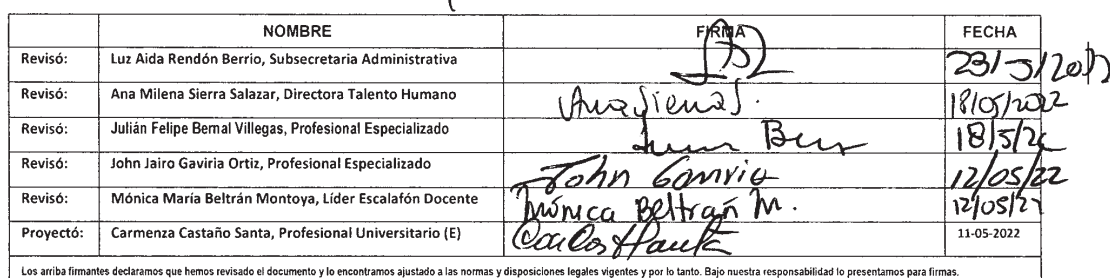 NOMBRE FIRMA FECHA
Revisó: Luz Aida Rendón Berrio, Subsecretaria Administrativa 23/5/
Revisó: Ana Milena Sierra Salazar, Directora Talento Humano Ana Sierra S. 18/05/2022
Revisó: Julián Felipe Bernal Villegas, Profesional Especializado 18/5/22
Revisó: John Jairo Gaviria Ortiz, Profesional Especializado John Gaviria 12/05/22
Revisó: Mónica María Beltrán Montoya, Líder Escalafón Docente Mónica Beltrán M. 12/05/22
Proyectó: Carmenza Castaño Santa, Profesional Universitario (E) 11-05-2022
Los arriba firmantes declaramos que hemos revisado el documento y lo encontramos ajustado a las normas y disposiciones legales vigentes y por lo tanto. Bajo nuestra responsabilidad lo presentamos para firmas.